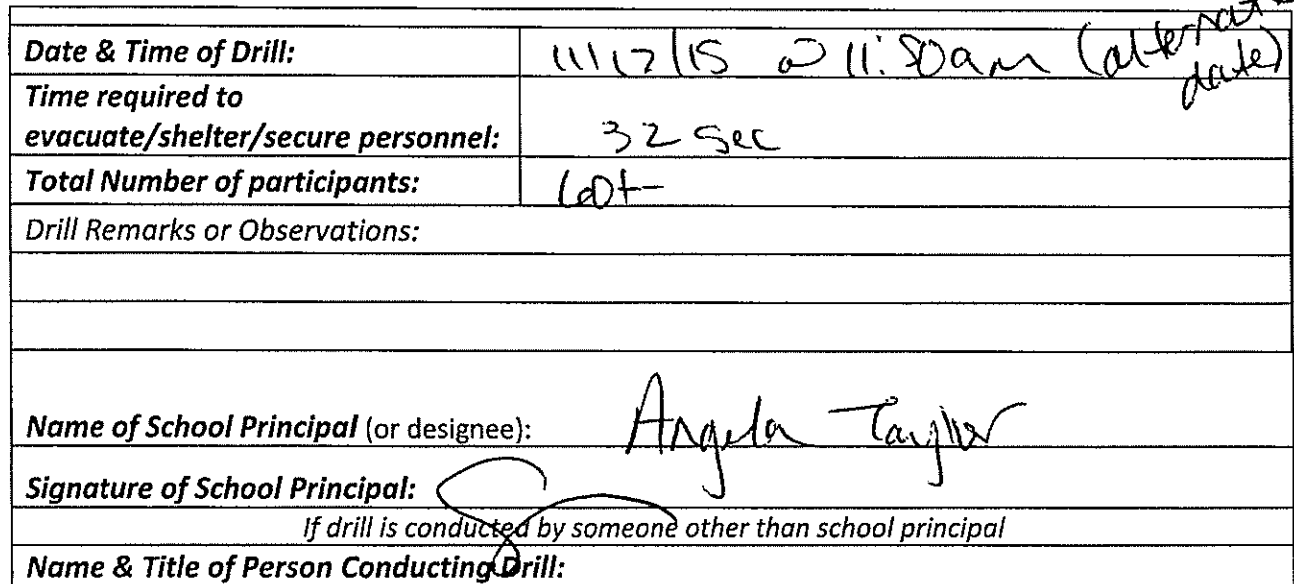 Date & Time of Drill: 11/17/15 @ 11:50am (alternate date)
Time required to
evacuate/shelter/secure personnel: 32 sec
Total Number of participants: 60+
Drill Remarks or Observations:
Name of School Principal (or designee): Angela Taylor
Signature of School Principal:
If drill is conducted by someone other than school principal
Name & Title of Person Conducting Drill: